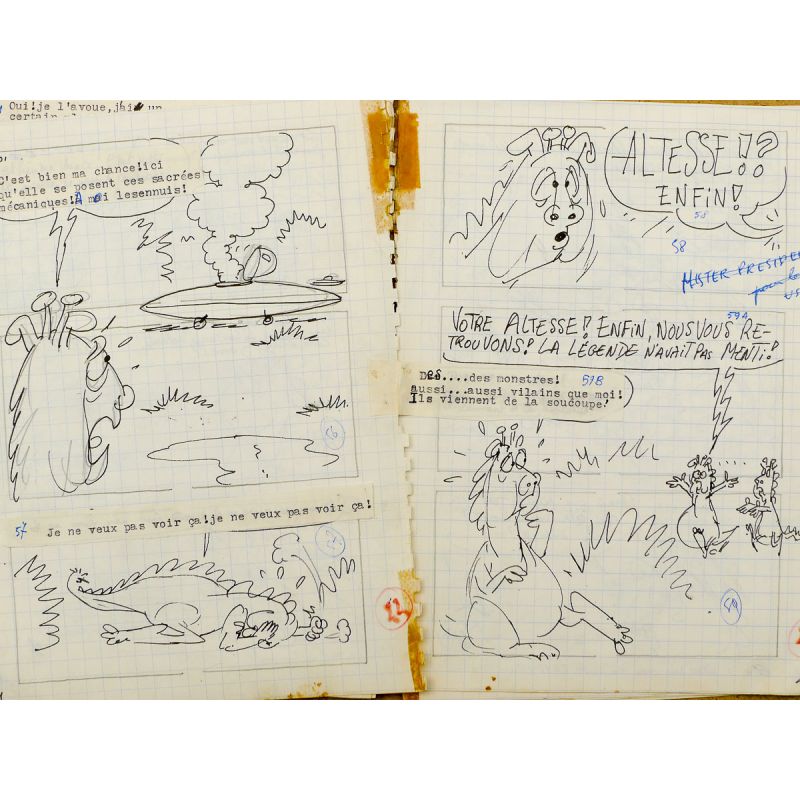 Oui!je l'avoue,j'ai un
certain
C'est bien ma chance!ici
qu'elle se posent ces sacrées
mécaniques!A moi lesennuis!
57
Je ne veux pas voir ça!je ne veux pas voir ça!
13
ALTESSE!!?
ENFIN!
58
58
MISTER PRESIDE
pour le
59A
VOTRE ALTESSE! ENFIN, NOUS VOUS RE-
TROUVONS! LA LÉGENDE N'AVAIT PAS MENTI!
DES....des monstres! 59B
aussi...aussi vilains que moi!
Ils viennent de la soucoupe!